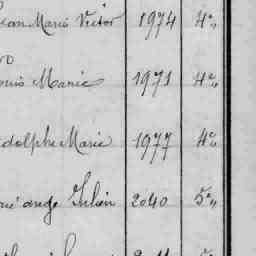 Jean Marie Victor 1974 4e "
Louis Marie 1971 4e "
Adolphe Marie 1977 4e "
Julien 2040 5e "